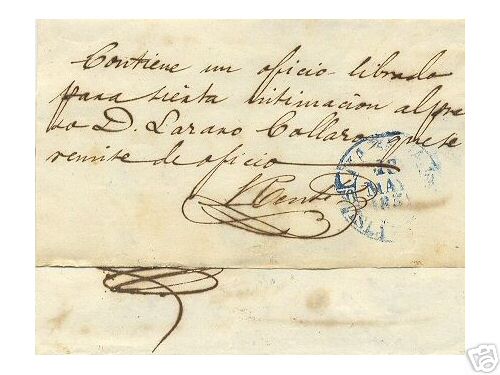 Contiene un oficio librado
para sierta intimacion al pre
so D. Lazaro Collazo que se
remite de oficio
MAY